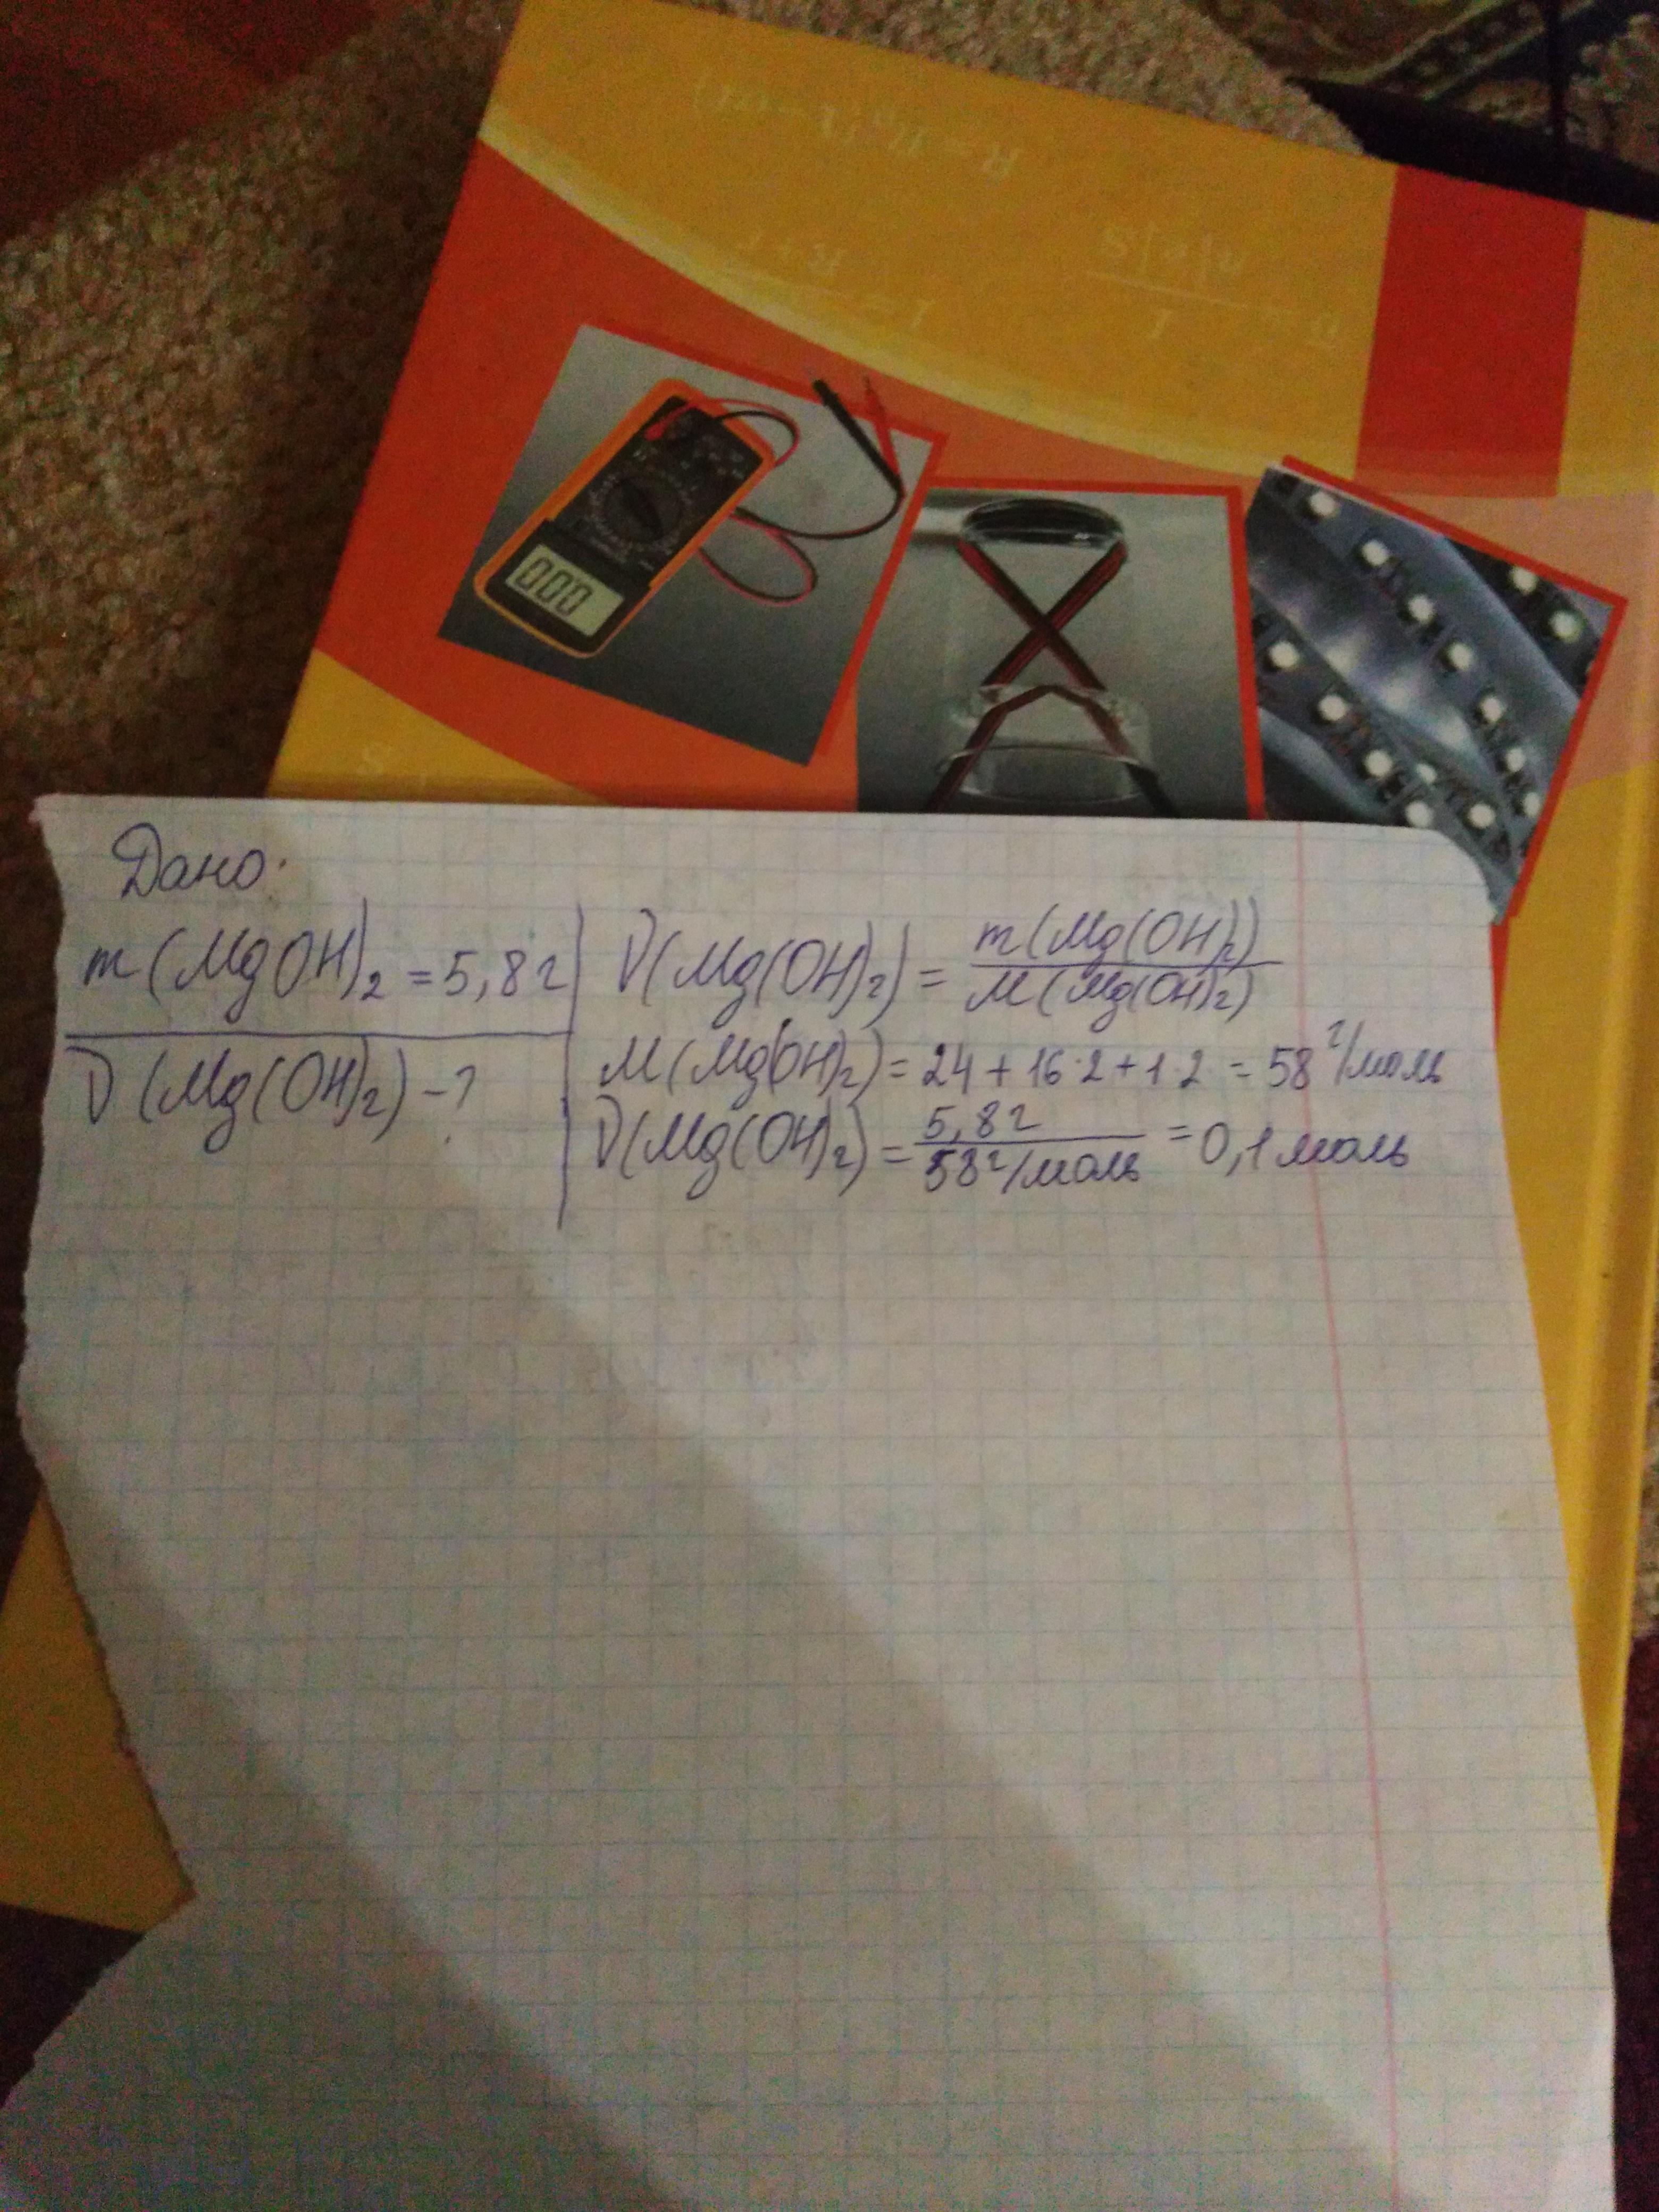 Дано:
m(MgOH)₂ = 5,8г
ν(Mg(OH)₂) - ?
ν(Mg(OH)₂) = m(Mg(OH)₂) / M(Mg(OH)₂)
M(Mg(OH)₂) = 24 + 16·2 + 1·2 = 58 г/моль
ν(Mg(OH)₂) = 5,8г / 58г/моль = 0,1 моль
000